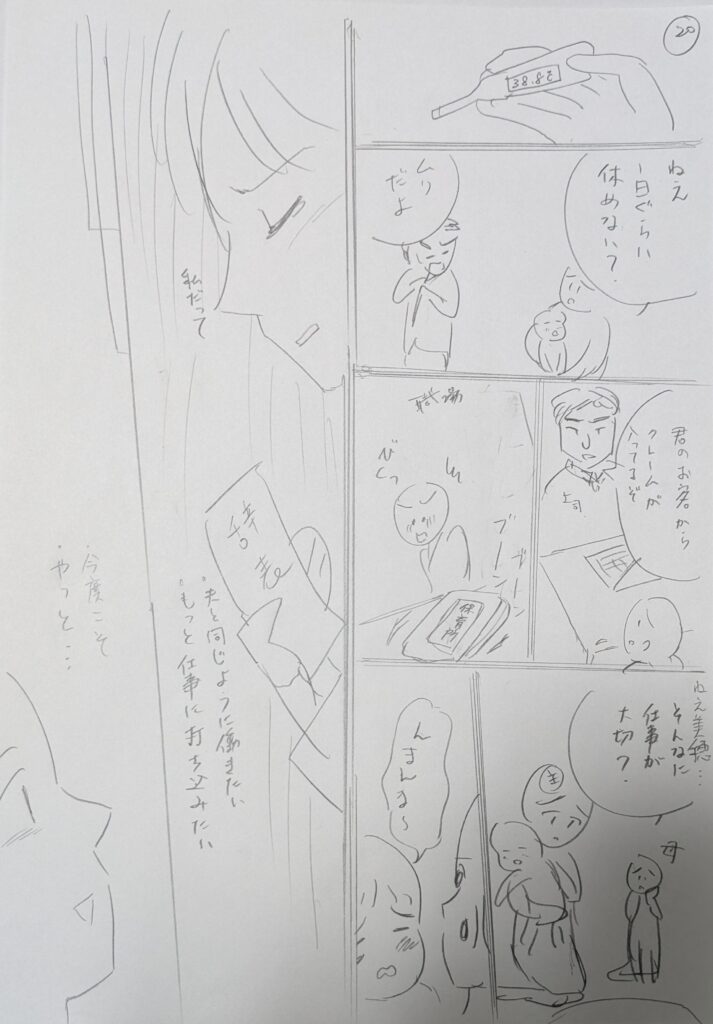 20
38.8℃
ねえ
一日ぐらい
休めない?
ムリ
だよ
君のお客から
クレームが
入ってるぞ
上司
職場
びくっ
ブーン
ブーン
保育所
ねえ美穂…
そんなに
仕事が
大切?
母
んまんま〜
私だって
辞表
夫と同じように働きたい
もっと仕事に打ち込みたい
今度こそ
やっと…